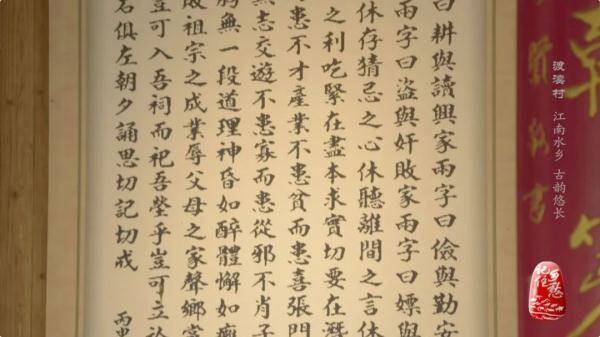 曰耕與讀興家兩字曰儉與勤安
兩字曰盜與奸敗家兩字曰嫖與
休存猜忌之心休聽離間之言休
之利吃緊在盡本求實切要在
患不才產業不患貧而患喜張門
無志交遊不患寡而患從邪不肖子
胸無一段道理神昏如醉體懈如
敗祖宗之成業辱父母之家聲鄉
豈可入吾祠而祀吾塋乎豈可立於
名俱左朝夕誦思切記切戒
丙
江南水乡 古韵悠长
记住乡愁